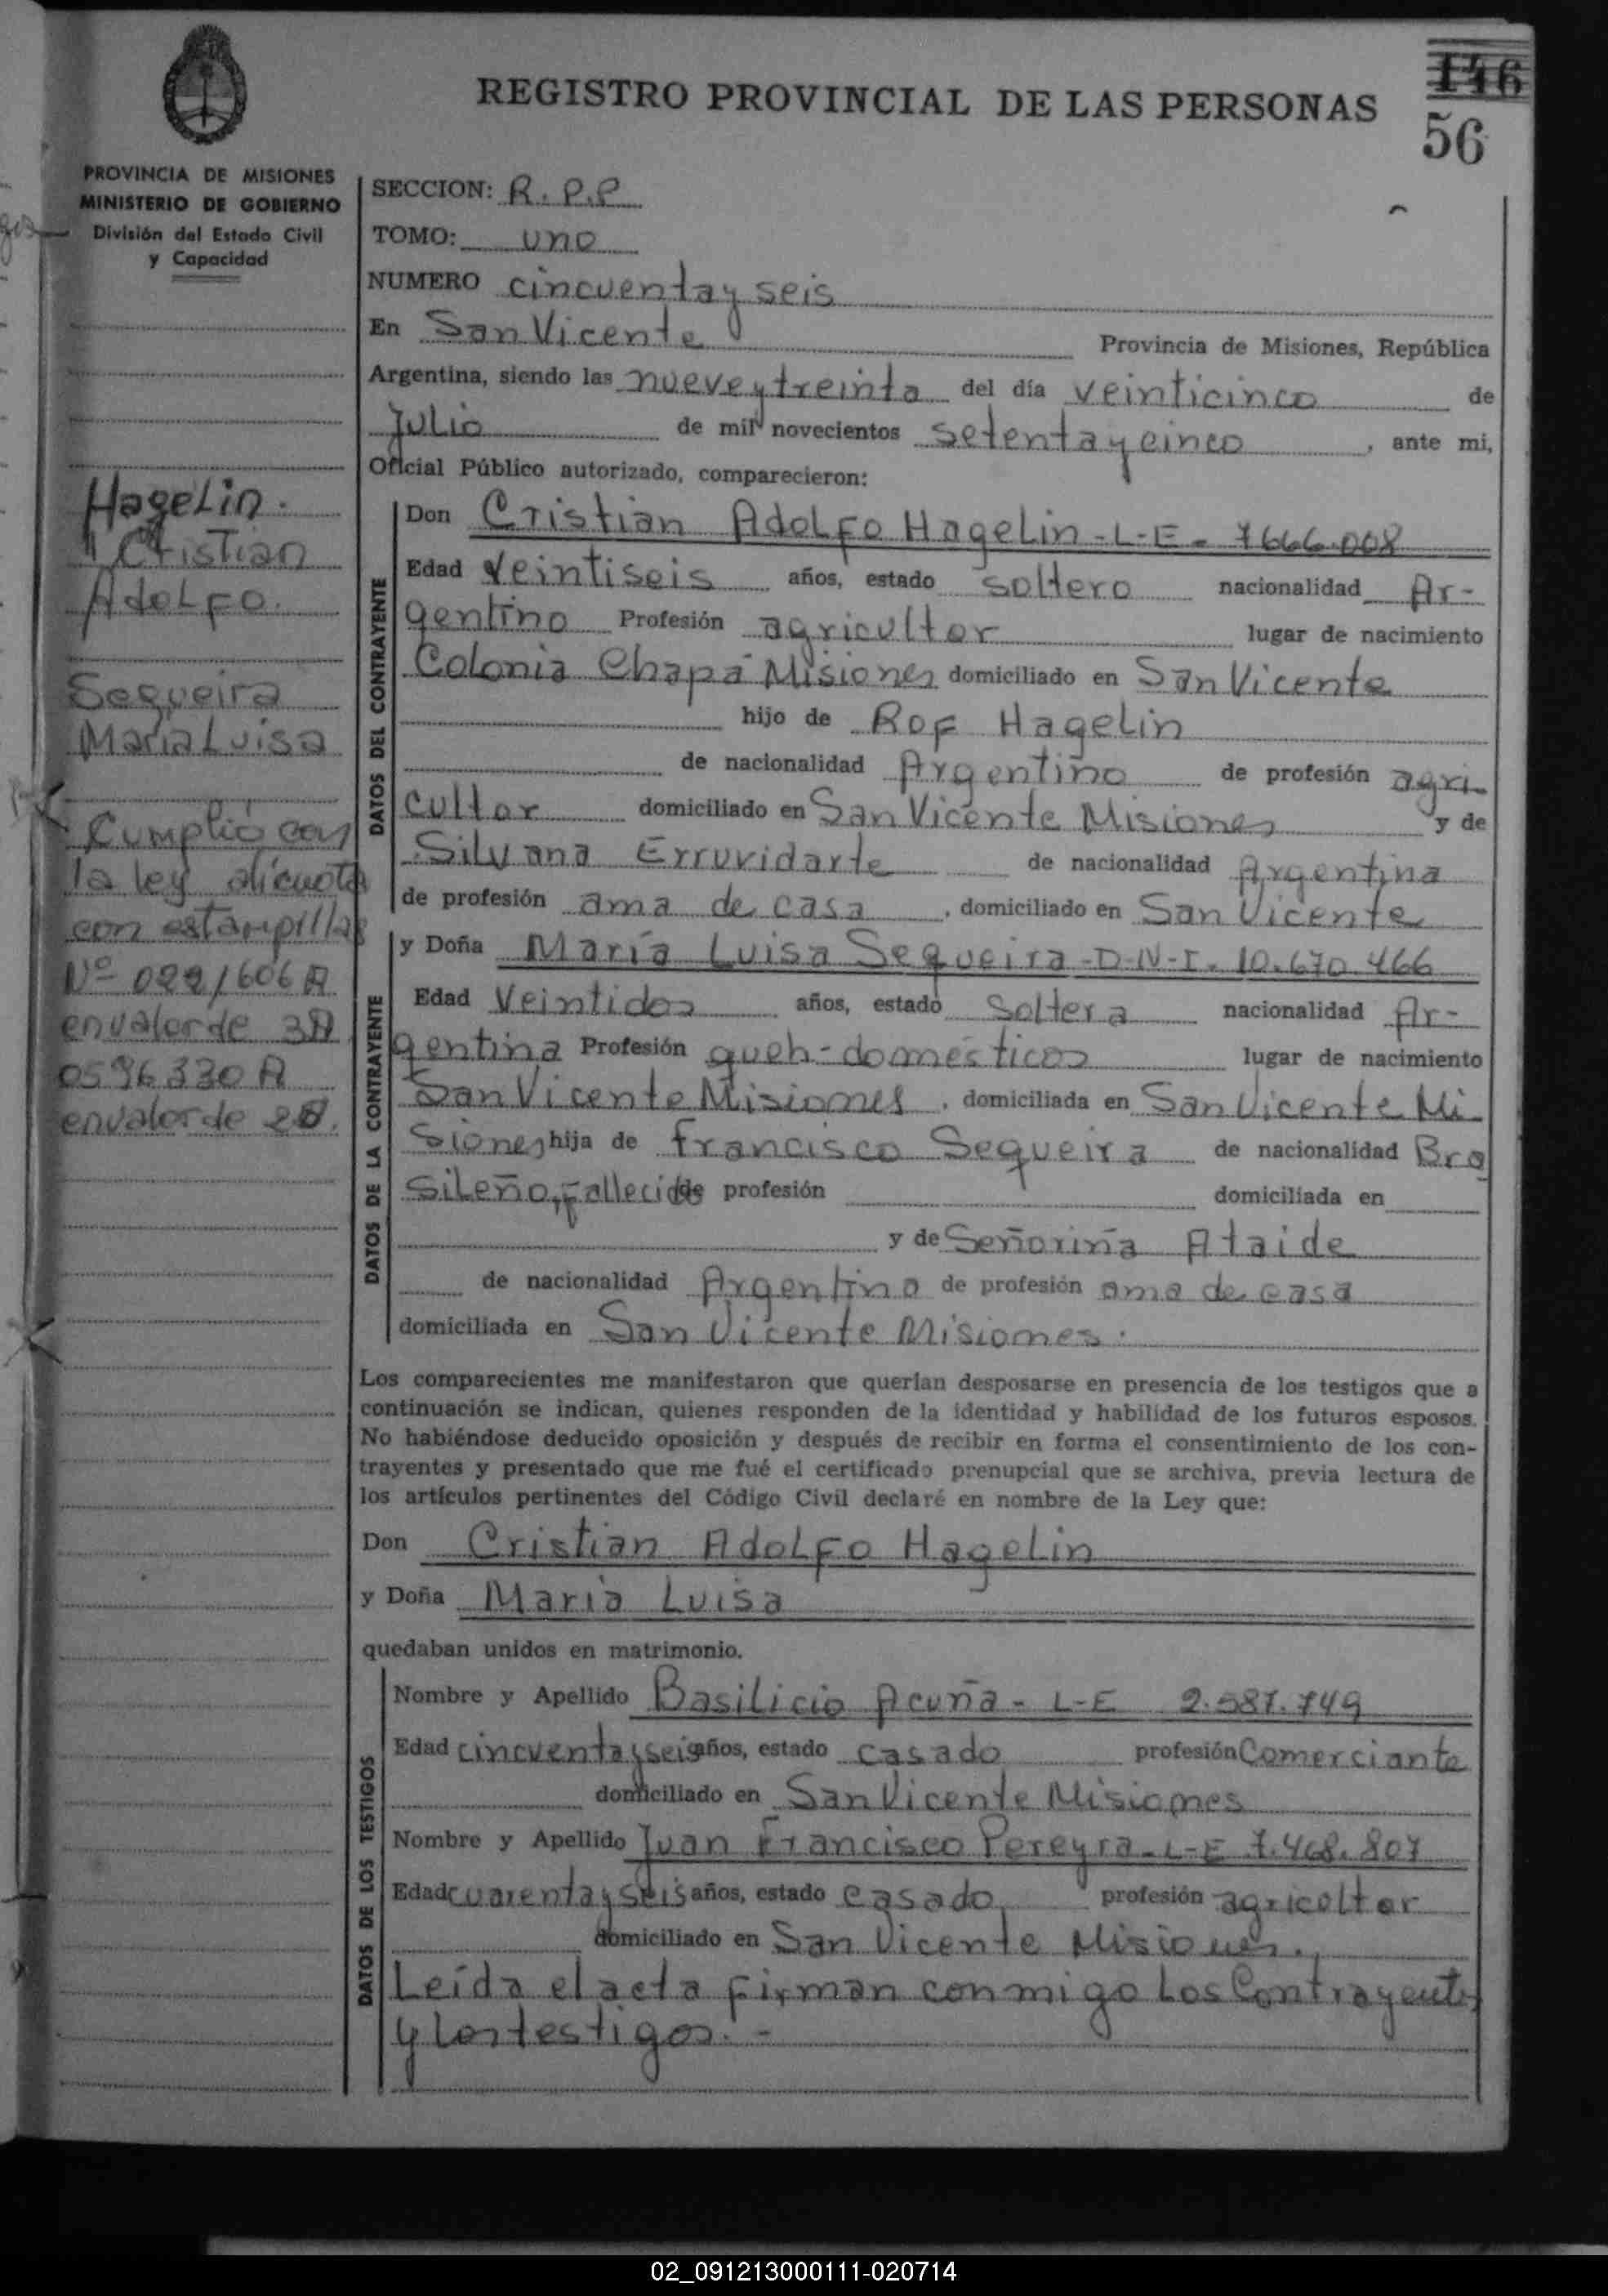 146
REGISTRO PROVINCIAL DE LAS PERSONAS
56
PROVINCIA DE MISIONES
MINISTERIO DE GOBIERNO
División del Estado Civil
y Capacidad
Hagelin.
Cristian
Adolfo.
Sequeira
Maria Luisa
Cumplió con
la ley alicuota
con estampillas
Nº 0221606A
en valor de 3
0596330 A
en valor de 2
SECCION: R.P.P
TOMO: uno
NUMERO cincuenta y seis
En San Vicente Provincia de Misiones, República
Argentina, siendo las nueve y treinta del día veinticinco de
Julio de mil novecientos setenta y cinco, ante mi,
Oficial Público autorizado, comparecieron:
DATOS DEL CONTRAYENTE
Don Cristian Adolfo Hagelin-L-E- 7666.008
Edad veintiseis años, estado soltero nacionalidad Ar-
gentino Profesión agricultor lugar de nacimiento
Colonia Chapa Misiones domiciliado en San Vicente
hijo de Rof Hagelin
de nacionalidad Argentino de profesión agri-
cultor domiciliado en San Vicente Misiones y de
Silvana Erruvidarte de nacionalidad Argentina
de profesión ama de casa, domiciliado en San Vicente
DATOS DE LA CONTRAYENTE
y Doña María Luisa Sequeira-D-N-I. 10.670.466
Edad Veintidos años, estado Soltera nacionalidad Ar-
gentina Profesión queh-domésticos lugar de nacimiento
San Vicente Misiones, domiciliada en San Vicente Mi
siones hija de Francisco Sequeira de nacionalidad Bra
sileño, fallecido de profesión domiciliada en
y de Señoriña Ataide
de nacionalidad Argentina de profesión ama de casa
domiciliada en San Vicente Misiones.
Los comparecientes me manifestaron que querían desposarse en presencia de los testigos que a
continuación se indican, quienes responden de la identidad y habilidad de los futuros esposos.
No habiéndose deducido oposición y después de recibir en forma el consentimiento de los con-
trayentes y presentado que me fué el certificado prenupcial que se archiva, previa lectura de
los artículos pertinentes del Código Civil declaré en nombre de la Ley que:
Don Cristian Adolfo Hagelin
y Doña Maria Luisa
quedaban unidos en matrimonio.
DATOS DE LOS TESTIGOS
Nombre y Apellido Basilicio Acuña- L-E 2.587.749
Edad cincuenta y seis años, estado casado profesión Comerciante
domiciliado en San Vicente Misiones
Nombre y Apellido Juan Francisco Pereyra-L-E 7.468.807
Edad cuarenta y seis años, estado casado profesión agricultor
domiciliado en San Vicente Misiones.
Leída el acta firman conmigo los Contrayentes
y los testigos.-
02_091213000111-020714